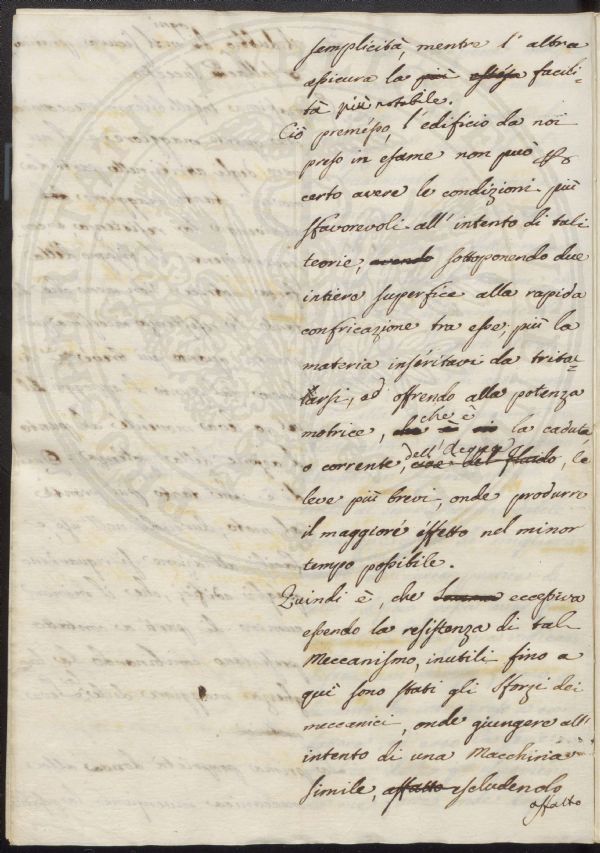 semplicità, mentre l'altra
assicura la più estesa facili-
tà più notabile.
Ciò premésso, l'edificio da noi
preso in esame non può
certo avere le condizioni più
sfavorevoli all'intento di tali
teorie, avendo sottoponendo due
intiere superfice alla rapida
confricazione tra esse, più la
materia inséritavi da trita-
tarsi, ed offrendo alla potenza
motrice, che è la caduta
o corrente, dell'Acqua, le
leve più brevi, onde produrre
il maggiore éffetto nel minor
tempo possibile.
Quindi è, che eccessiva
essendo la resistenza di tal
Meccanismo, inutili fino a
quì sono stati gli sforzi dei
meccanici, onde giungere all'
intento di una Macchina
simile, affatto escludendo
affatto